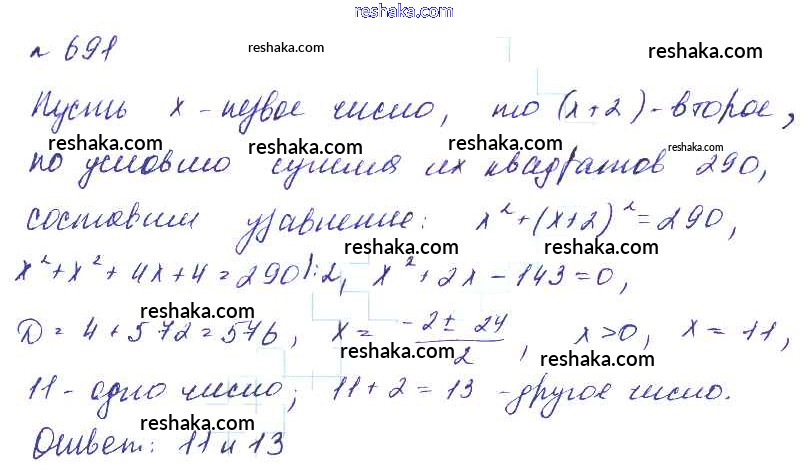 reshaka.com
n 691 reshaka.com reshaka.com
Пусть x - первое число, то (x+2) - второе,
reshaka.com reshaka.com reshaka.com
по условию сумма их квадратов 290,
составим уравнение: x² + (x+2)² = 290,
reshaka.com reshaka.com reshaka.com
x² + x² + 4x + 4 = 290 |:2, x² + 2x - 143 = 0,
reshaka.com
D = 4 + 572 = 576, x = (-2 ± 24)/2, x>0, x = 11,
reshaka.com reshaka.com
11 - одно число; 11 + 2 = 13 - другое число.
reshaka.com reshaka.com
Ответ: 11 и 13